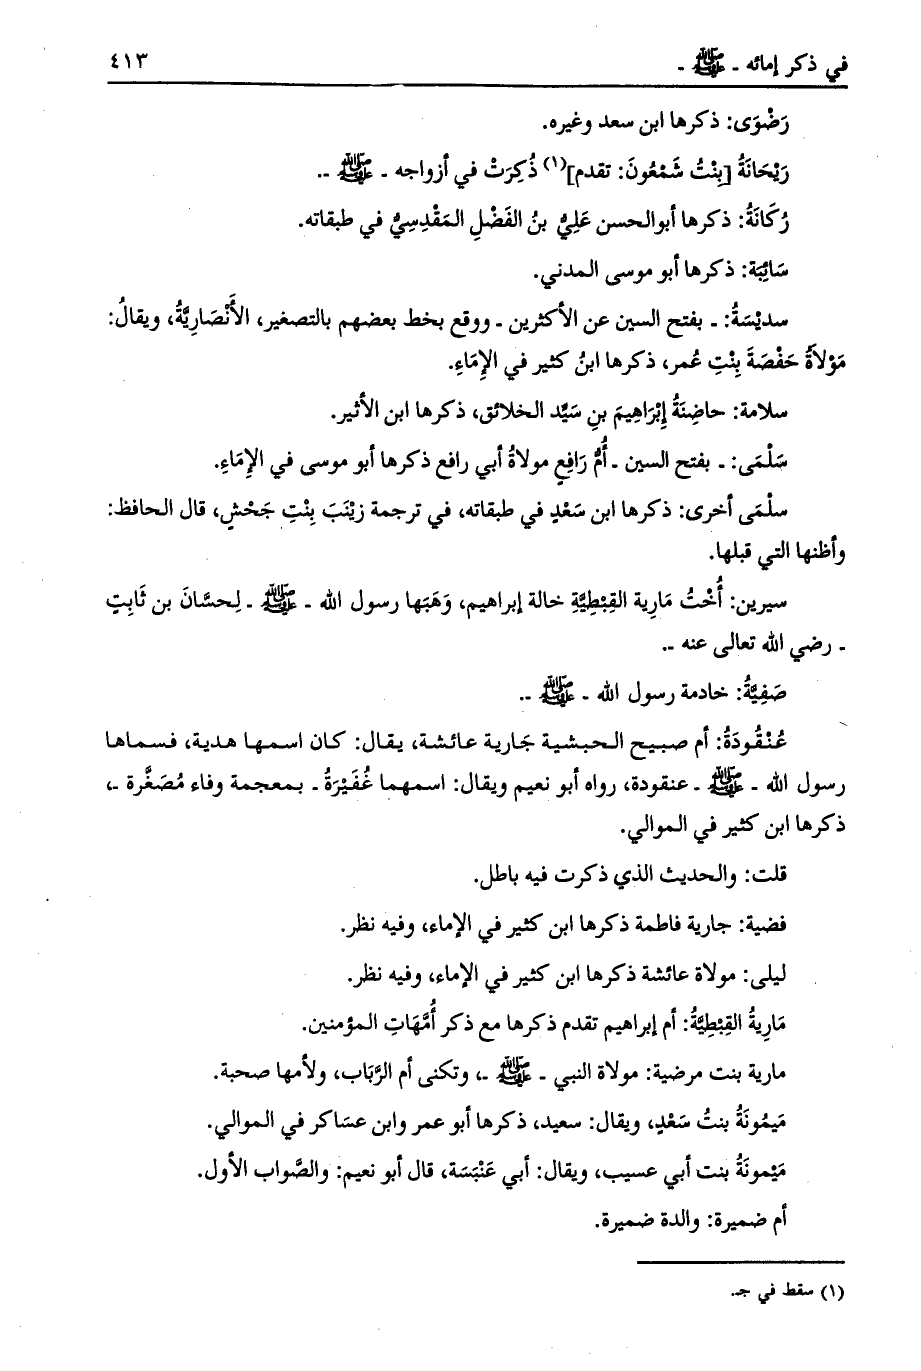 في ذكر إمائه ـ ﷺ ـ ٤١٣
رَضْوَى: ذكرها ابن سعد وغيره.
رَيْحَانَةُ [بِنْتُ شَمْعُونَ: تقدم](١) ذُكِرَتْ في أزواجه ـ ﷺ ـ.
رُكَانَةُ: ذكرها أبوالحسن عَلِيُّ بنُ الفَضْلِ المَقْدِسِيُّ في طبقاته.
سَائِبَة: ذكرها أبو موسى المدني.
سديْسَةُ: ـ بفتح السين عن الأكثرين ـ ووقع بخط بعضهم بالتصغير، الأَنْصَارِيَّةُ، ويقالُ:
مَوْلاَةُ حَفْصَةَ بِنْتِ عُمر، ذكرها ابنُ كثير في الإِمَاءِ.
سلامة: حاضِنَةُ إِبْرَاهِيمَ بنِ سَيِّد الخلائق، ذكرها ابن الأثير.
سَلْمَى: ـ بفتح السين ـ أُمُّ رَافِعٍ مولاةُ أبي رافع ذكرها أبو موسى في الإِمَاءِ.
سلْمَى أخرى: ذكرها ابن سَعْدٍ في طبقاته، في ترجمة زيْنَبَ بِنْتِ جَحْشٍ، قال الحافظ:
وأظنها التي قبلها.
سيرين: أُخْتُ مَارِية القِبْطِيَّةِ خالة إبراهيم، وَهَبَها رسول الله ـ ﷺ ـ لِحسَّانَ بن ثَابِتٍ
ـ رضي الله تعالى عنه ـ.
صَفِيَّةُ: خادمة رسول الله ـ ﷺ ـ.
عُنْقُودَةُ: أم صبيح الحبشية جَارية عائشة، يقال: كان اسمها هدية، فسماها
رسول الله ـ ﷺ ـ عنقودة، رواه أبو نعيم ويقال: اسمهما غُفَيْرَةُ ـ بمعجمة وفاء مُصَغَّرة ـ،
ذكرها ابن كثير في الموالي.
قلت: والحديث الذي ذكرت فيه باطل.
فضية: جارية فاطمة ذكرها ابن كثير في الإماء، وفيه نظر.
ليلى: مولاة عائشة ذكرها ابن كثير في الإماء، وفيه نظر.
مَارِيةُ القِبْطِيَّةُ: أم إبراهيم تقدم ذكرها مع ذكر أُمَّهَاتِ المؤمنين.
مارية بنت مرضية: مولاة النبي ـ ﷺ ـ، وتكنى أم الرَّبَاب، ولأمها صحبة.
مَيمُونَةُ بنتُ سَعْدٍ، ويقال: سعيد، ذكرها أبو عمر وابن عسَاكر في الموالي.
مَيْمونَةُ بنت أبي عسيب، ويقال: أبي عَنْبَسَة، قال أبو نعيم: والصَّواب الأول.
أم ضميرة: والدة ضميرة.
(١) سقط في جـ.